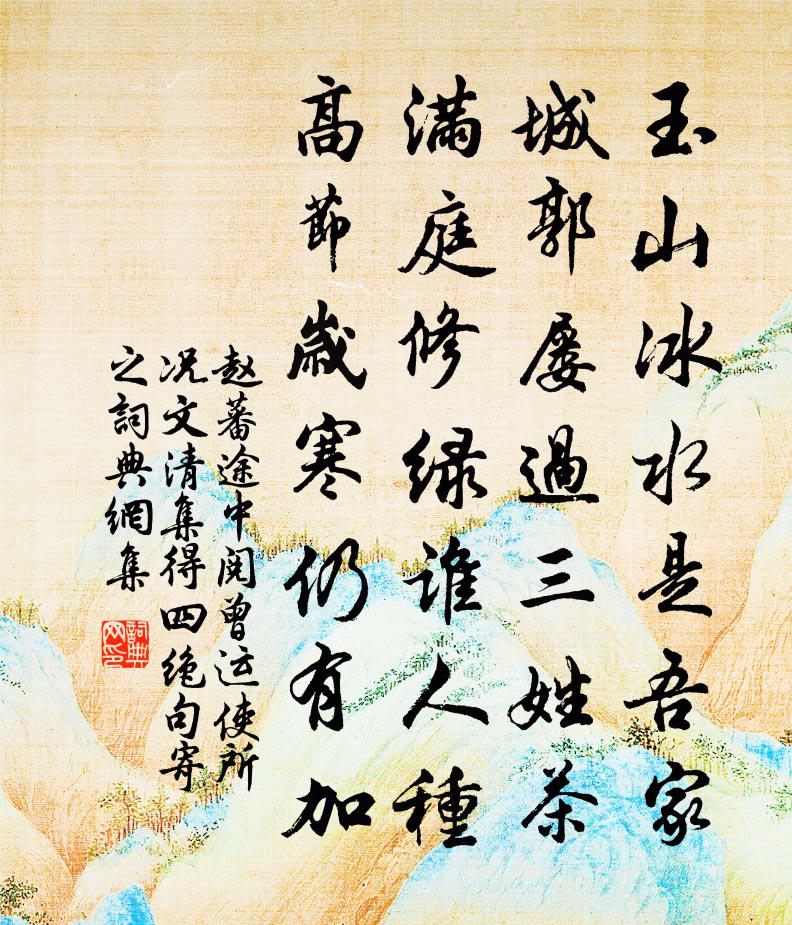 玉山冰水是吾家
城郭屡過三姓茶
滿庭修緑誰人種
高節歲寒仍有加
赵蕃途中閲曾运使所
况文清集得四绝句寄
之詞典網集
詞典网印